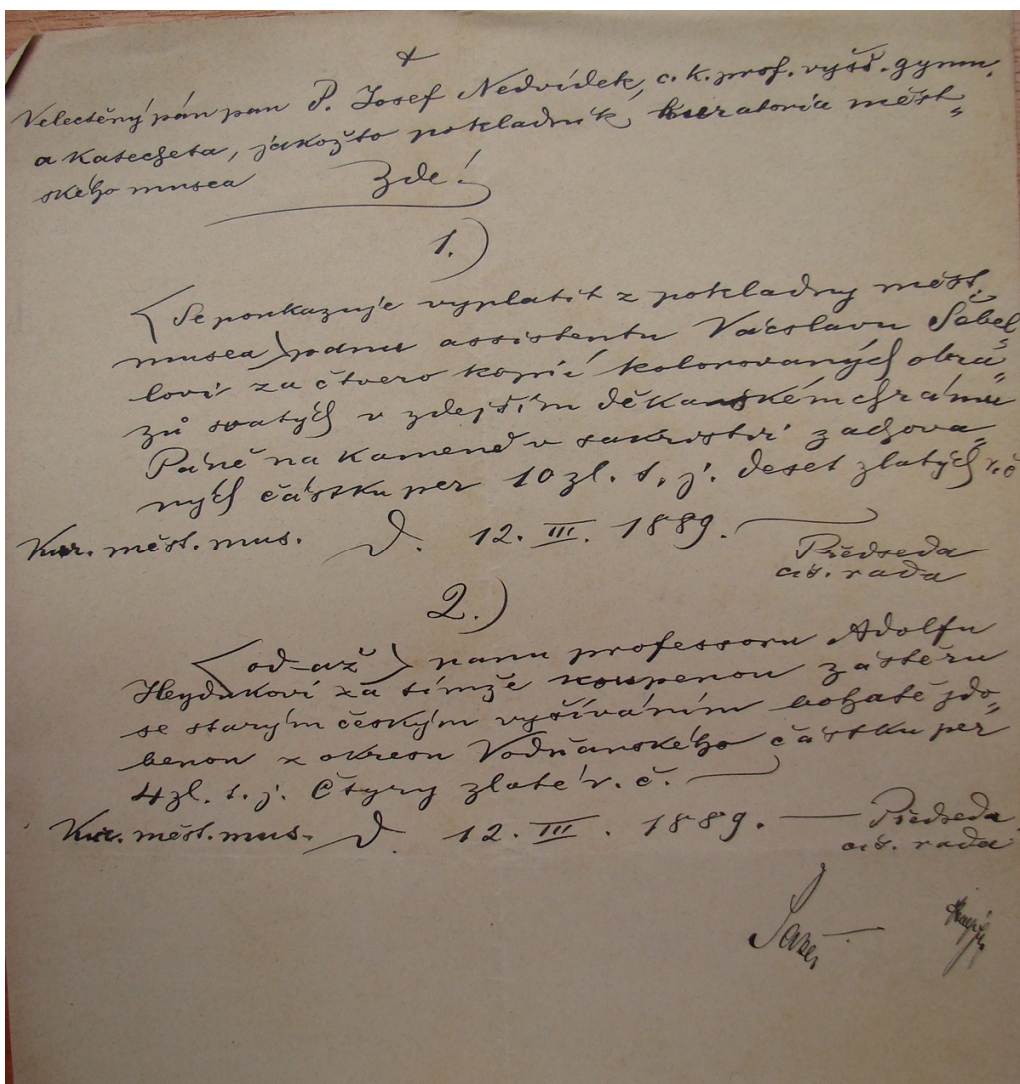 +
Velectěný pán pan P. Josef Nedvídek, c. k. prof. vyšš. gymn.
a Katecheta, jakožto pokladník kuratoria měst„
ského musea Zde!
1.)
Se poukazuje vyplatit z pokladny měst.
musea panu assistentu Vácslavu Šebel„
lovi za čtvero kopií kolorovaných obra„
zů svatých v zdejším děkanském chrámu
Páně na Kameně v sakristii zachova„
ných částku per 10 zl. t. j. deset zlatých r. č
Kur. měst. mus. D. 12. III. 1889.
Předseda
cís. rada
2.)
od-až panu professoru Adolfu
Heydukovi za tímže koupenou zástěru
se starým českým vyšíváním bohatě zdo„
benou z okresu Vodňanského částku per
4 zl. t. j. Čtyry zlaté r. č.
Kur. měst. mus. D. 12. III. 1889. Předseda
cís. rada